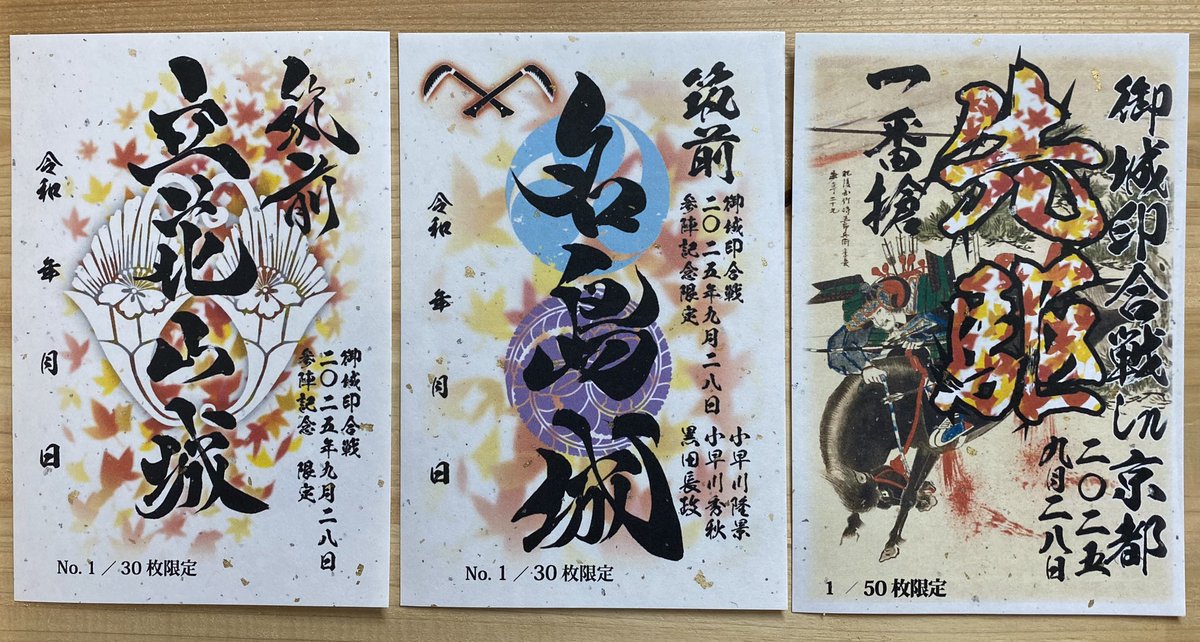 筑前
立花山城
御城印合戦
二〇二五年九月二八日
参陣記念 限定
令和 年 月 日
No. 1 / 30 枚限定
筑前
御城印合戦
二〇二五年九月二八日
参陣記念限定
小早川隆景
小早川秀秋
黒田長政
名島城
令和 年 月 日
No. 1 / 30 枚限定
御城印合戦in京都
二〇二五
九月二八日
先駆
一番槍
1 / 50 枚限定